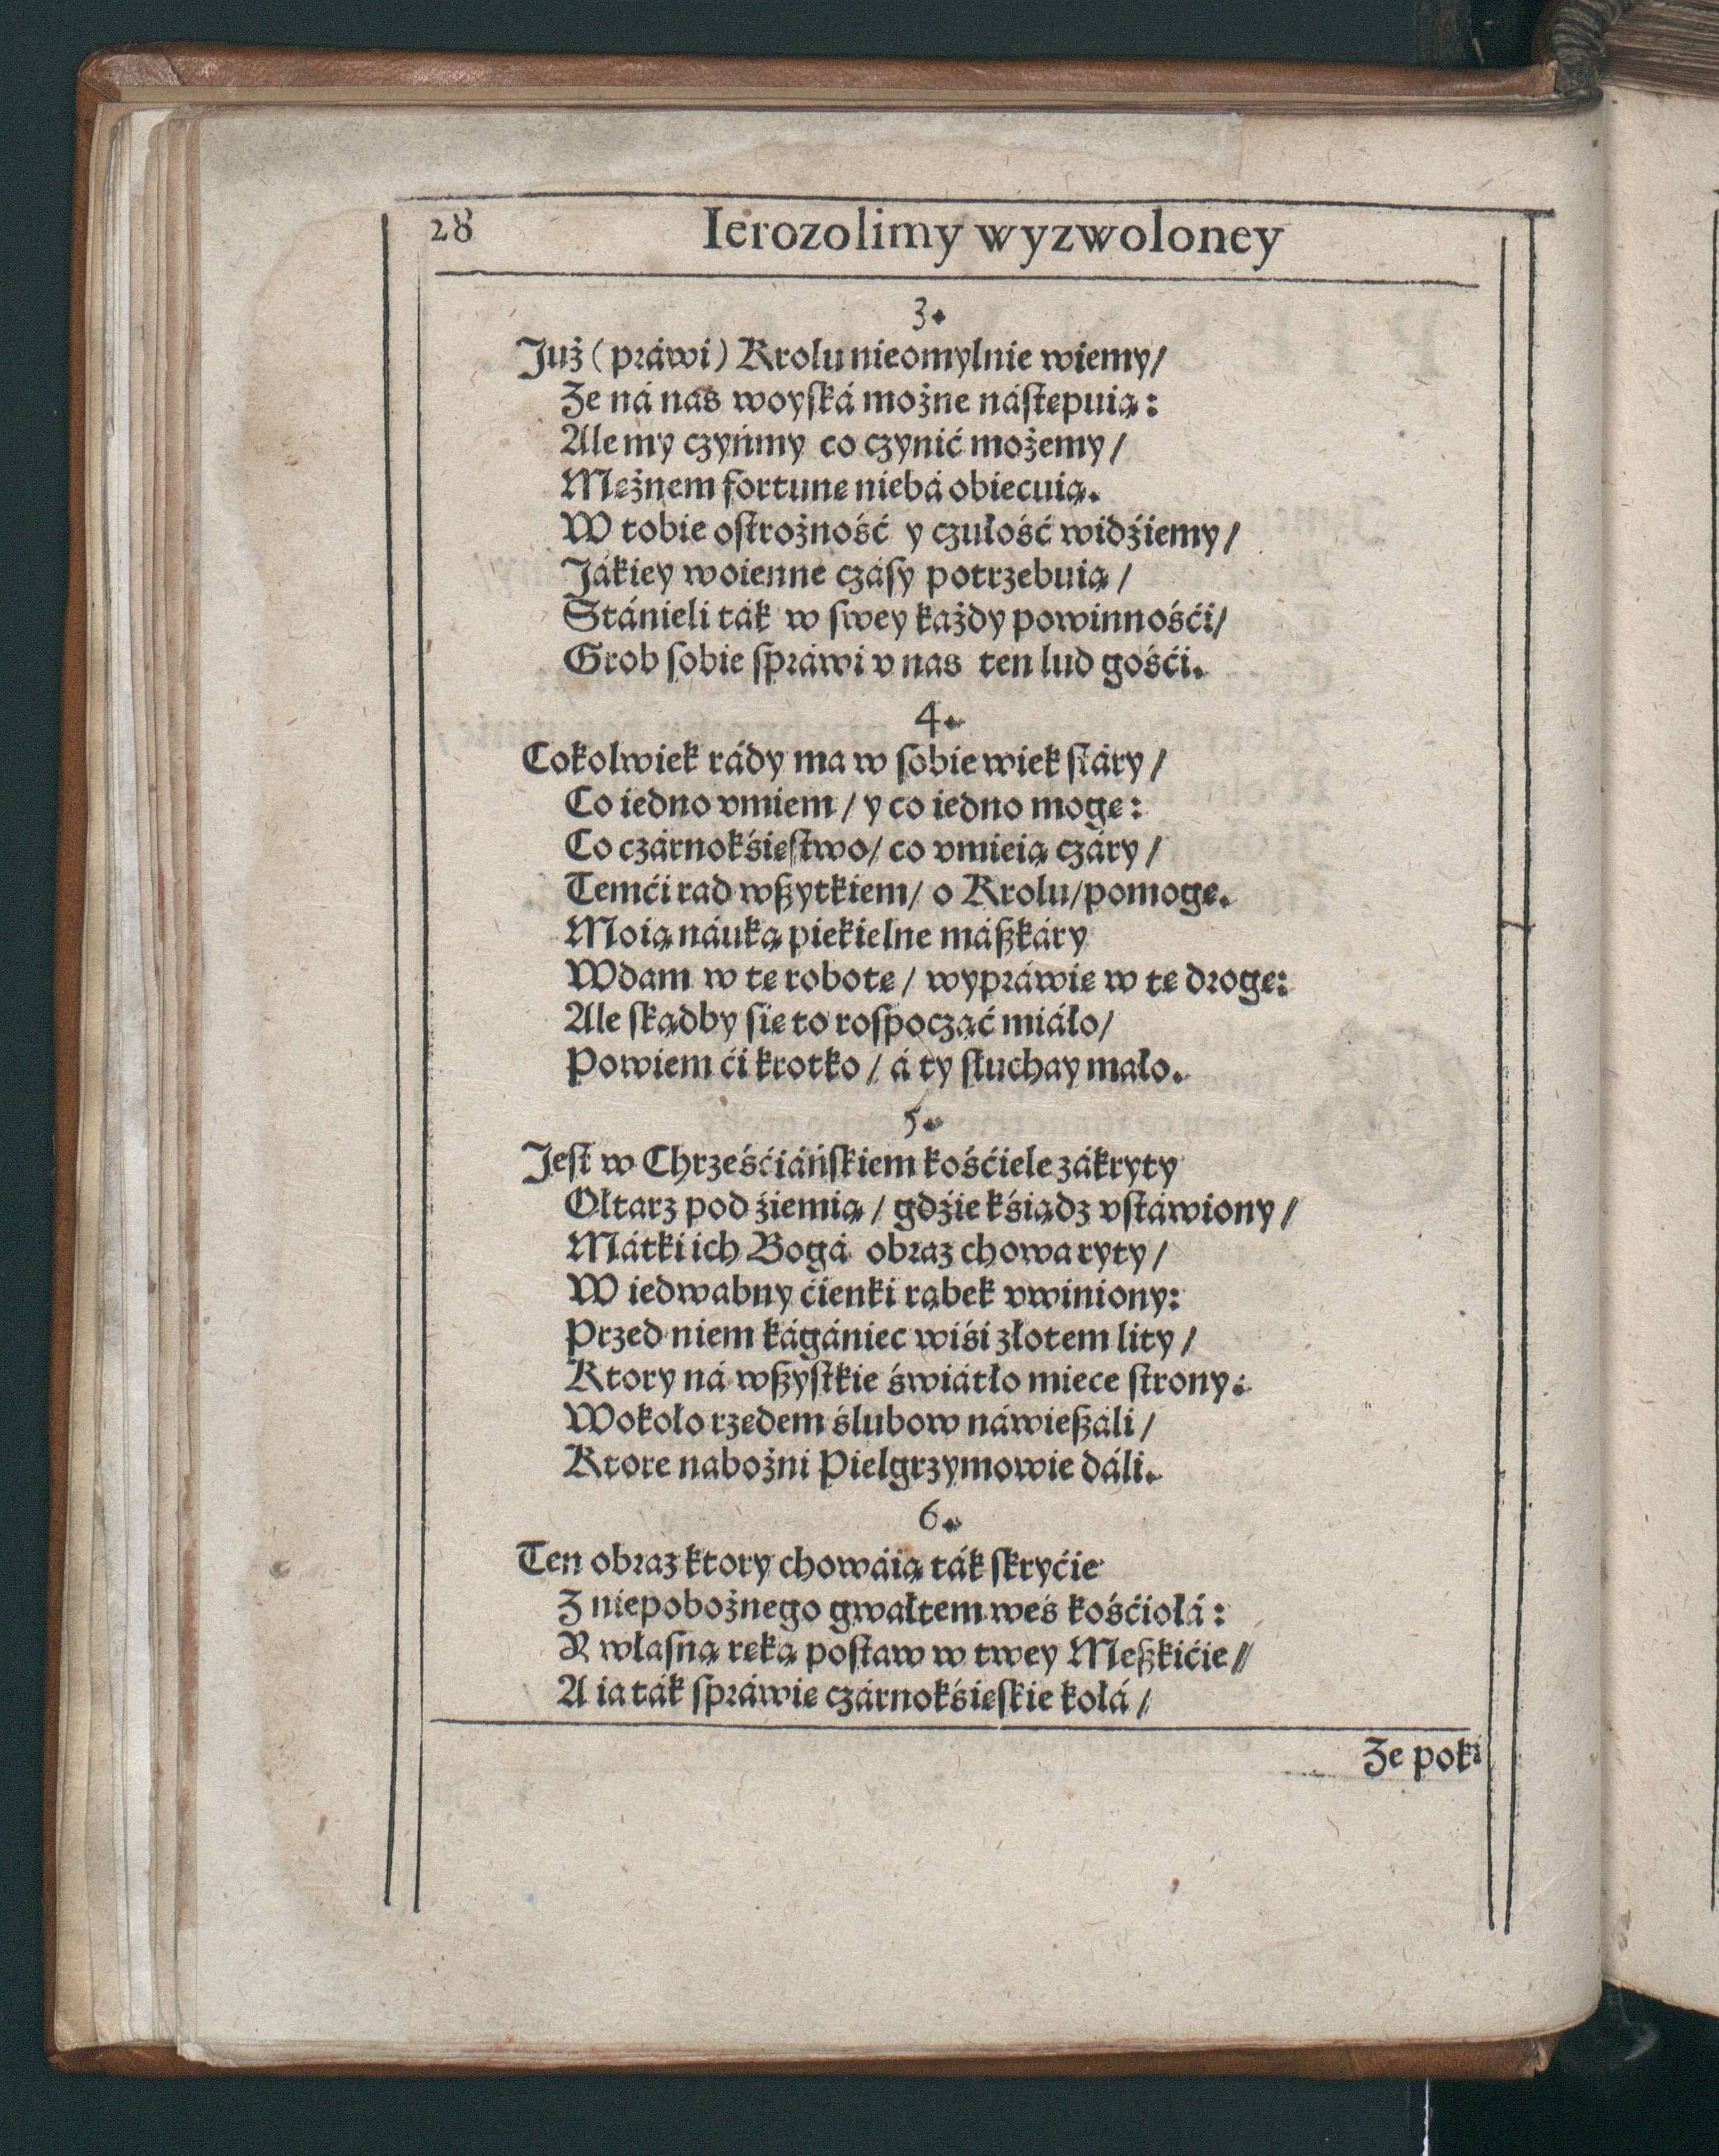 28 Ierozolimy wyzwoloney
3.
Już (práwi) Krolu nieomylnie wiemy/
Że ná nas woyſká możne náſtępuią:
Ale my czyńmy co czynić możemy/
Mężnem fortunę niebá obiecuią.
W tobie oſtrożność y czułość widźiemy/
Jákiey woienne czáſy potrzebuią/
Stánieli ták w ſwey każdy powinnośći/
Grob ſobie ſpráwi v nas ten lud gośći.
4.
Cokolwiek rády ma w ſobie wiek ſtáry/
Co iedno vmiem/ y co iedno mogę:
Co czárnokśięſtwo/ co vmieią czáry/
Temći rad wßytkiem/ o Krolu/ pomogę.
Moią náuką piekielne máßkáry
Wdam w tę robotę/ wypráwię w tę drogę:
Ale ſkądby ſię to roſpocząć miáło/
Powiem ći krotko/ á ty ſłuchay máło.
5.
Jeſt w Chrześćiáńſkiem kośćiele zákryty
Ołtarz pod źiemią/ gdźie kśiądz vſtáwiony/
Mátki ich Bogá obraz chowa ryty/
W iedwabny ćienki rąbek vwiniony:
Przed niem kágániec wiśi złotem lity/
Ktory ná wßyſtkie świátło miece ſtrony:
Wokoło rzędem ślubow náwießáli/
Ktore nabożni Pielgrzymowie dáli.
6.
Ten obraz ktory chowáią ták ſkryćie
Z niepobożnego gwałtem weś kośćiołá:
Y właſną ręką poſtaw w twey Meßkićie//
A ia ták ſpráwię czárnokśięſkie kołá/
Że poki